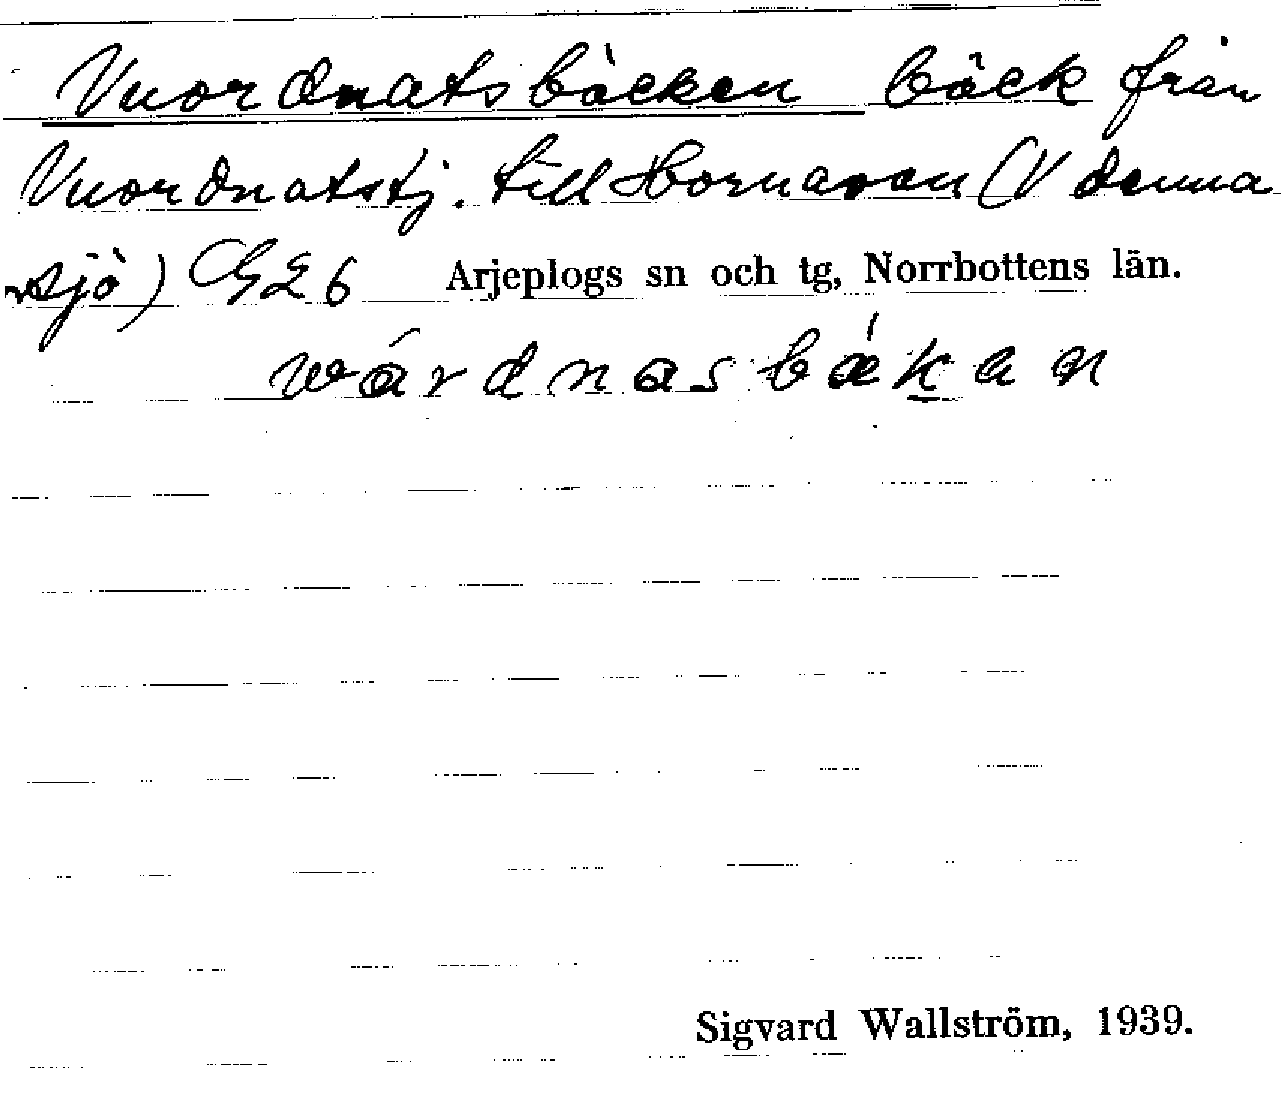 Vuordnatsbäcken bäck från
Vuordnatstj. till Hornavan (V denna
sjö) GE6 Arjeplogs sn och tg, Norrbottens län.
wárdnasbǽkan
Sigvard Wallström, 1939.